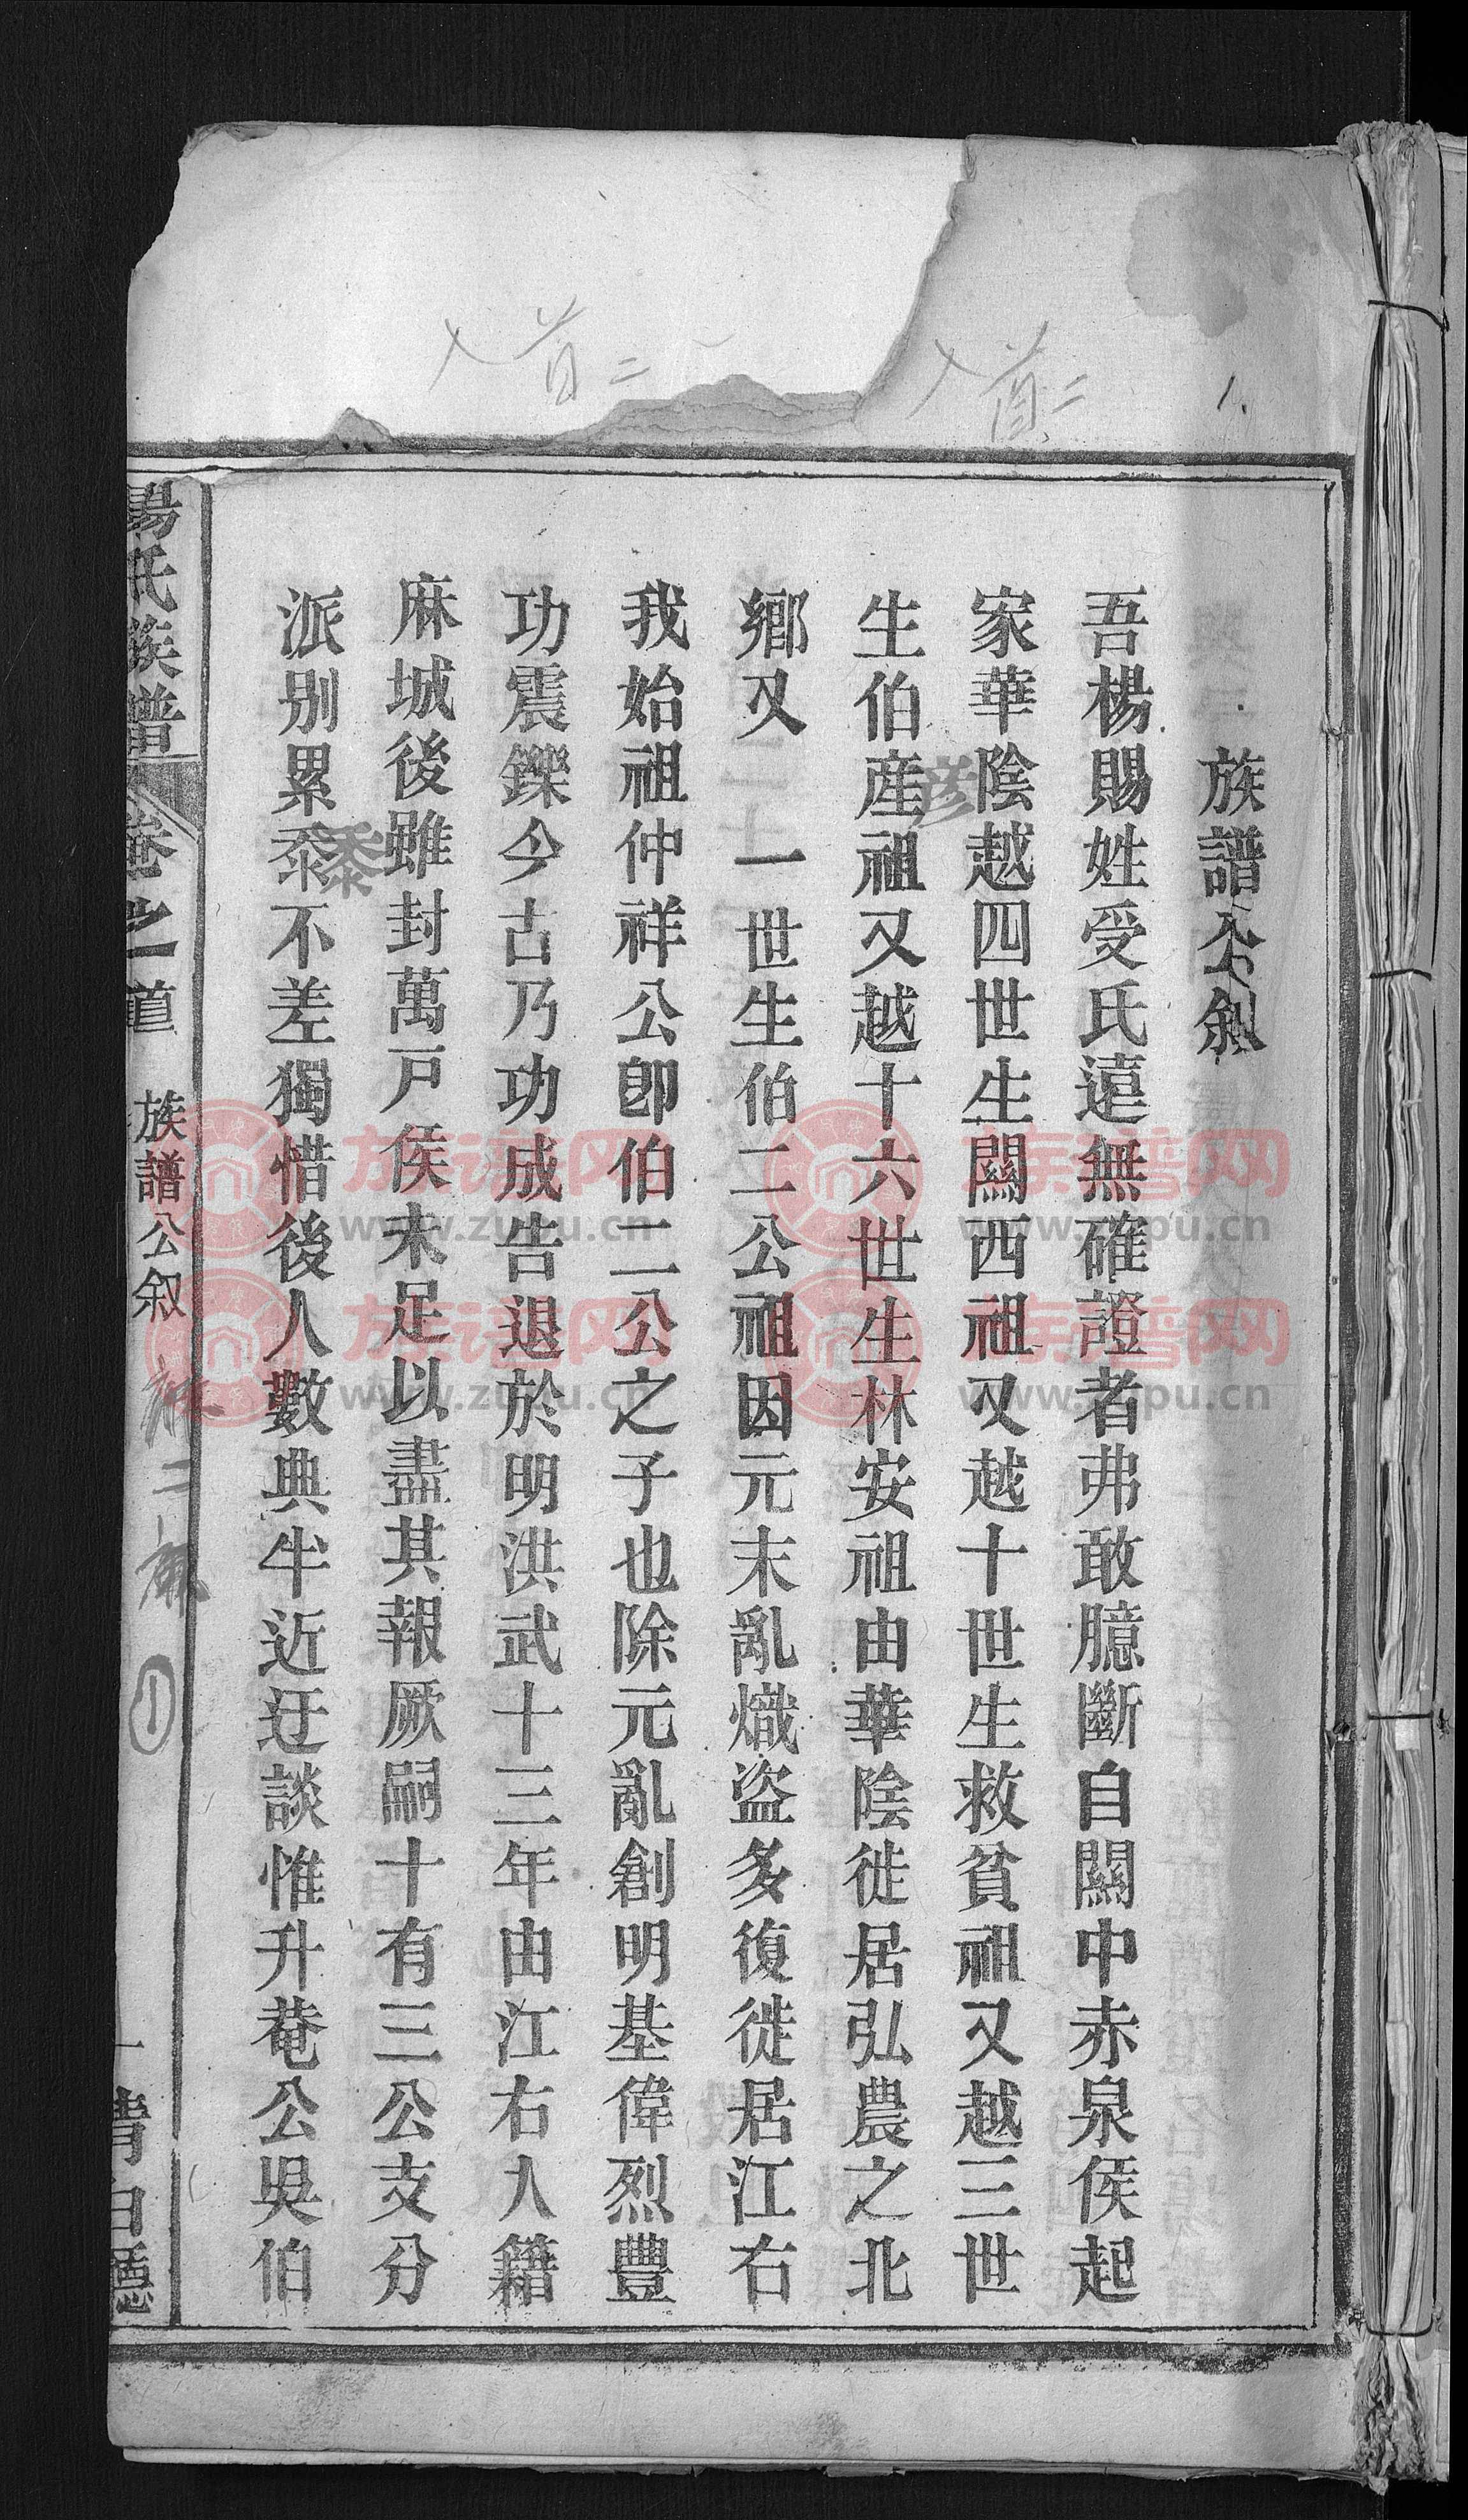 族譜公叙
吾楊賜姓受氏遠無確證者弗敢臆斷自關中赤泉侯起
家華陰越四世生關西祖又越十世生救貧祖又越三世
彥
生伯産祖又越十六世生林安祖由華陰徙居弘農之北
鄉又 一世生伯二公祖因元末亂熾盜多復徙居江右
我始祖仲祥公卽伯二公之子也除元亂創明基偉烈豐
功震鑠今古乃功成告退於明洪武十三年由江右入籍
麻城後雖封萬戸侯未足以盡其報厥嗣十有三公支分
黍
派别累桼不差獨惜後人數典牛近迂談惟升菴公吳伯
楊氏族譜 卷之首 族譜公叙 一 清白∅
入首二
入首二
1.
①
族谱网
www.zupu.cn
族谱网
www.zupu.cn
族谱网
www.zupu.cn
族谱网
www.zupu.cn